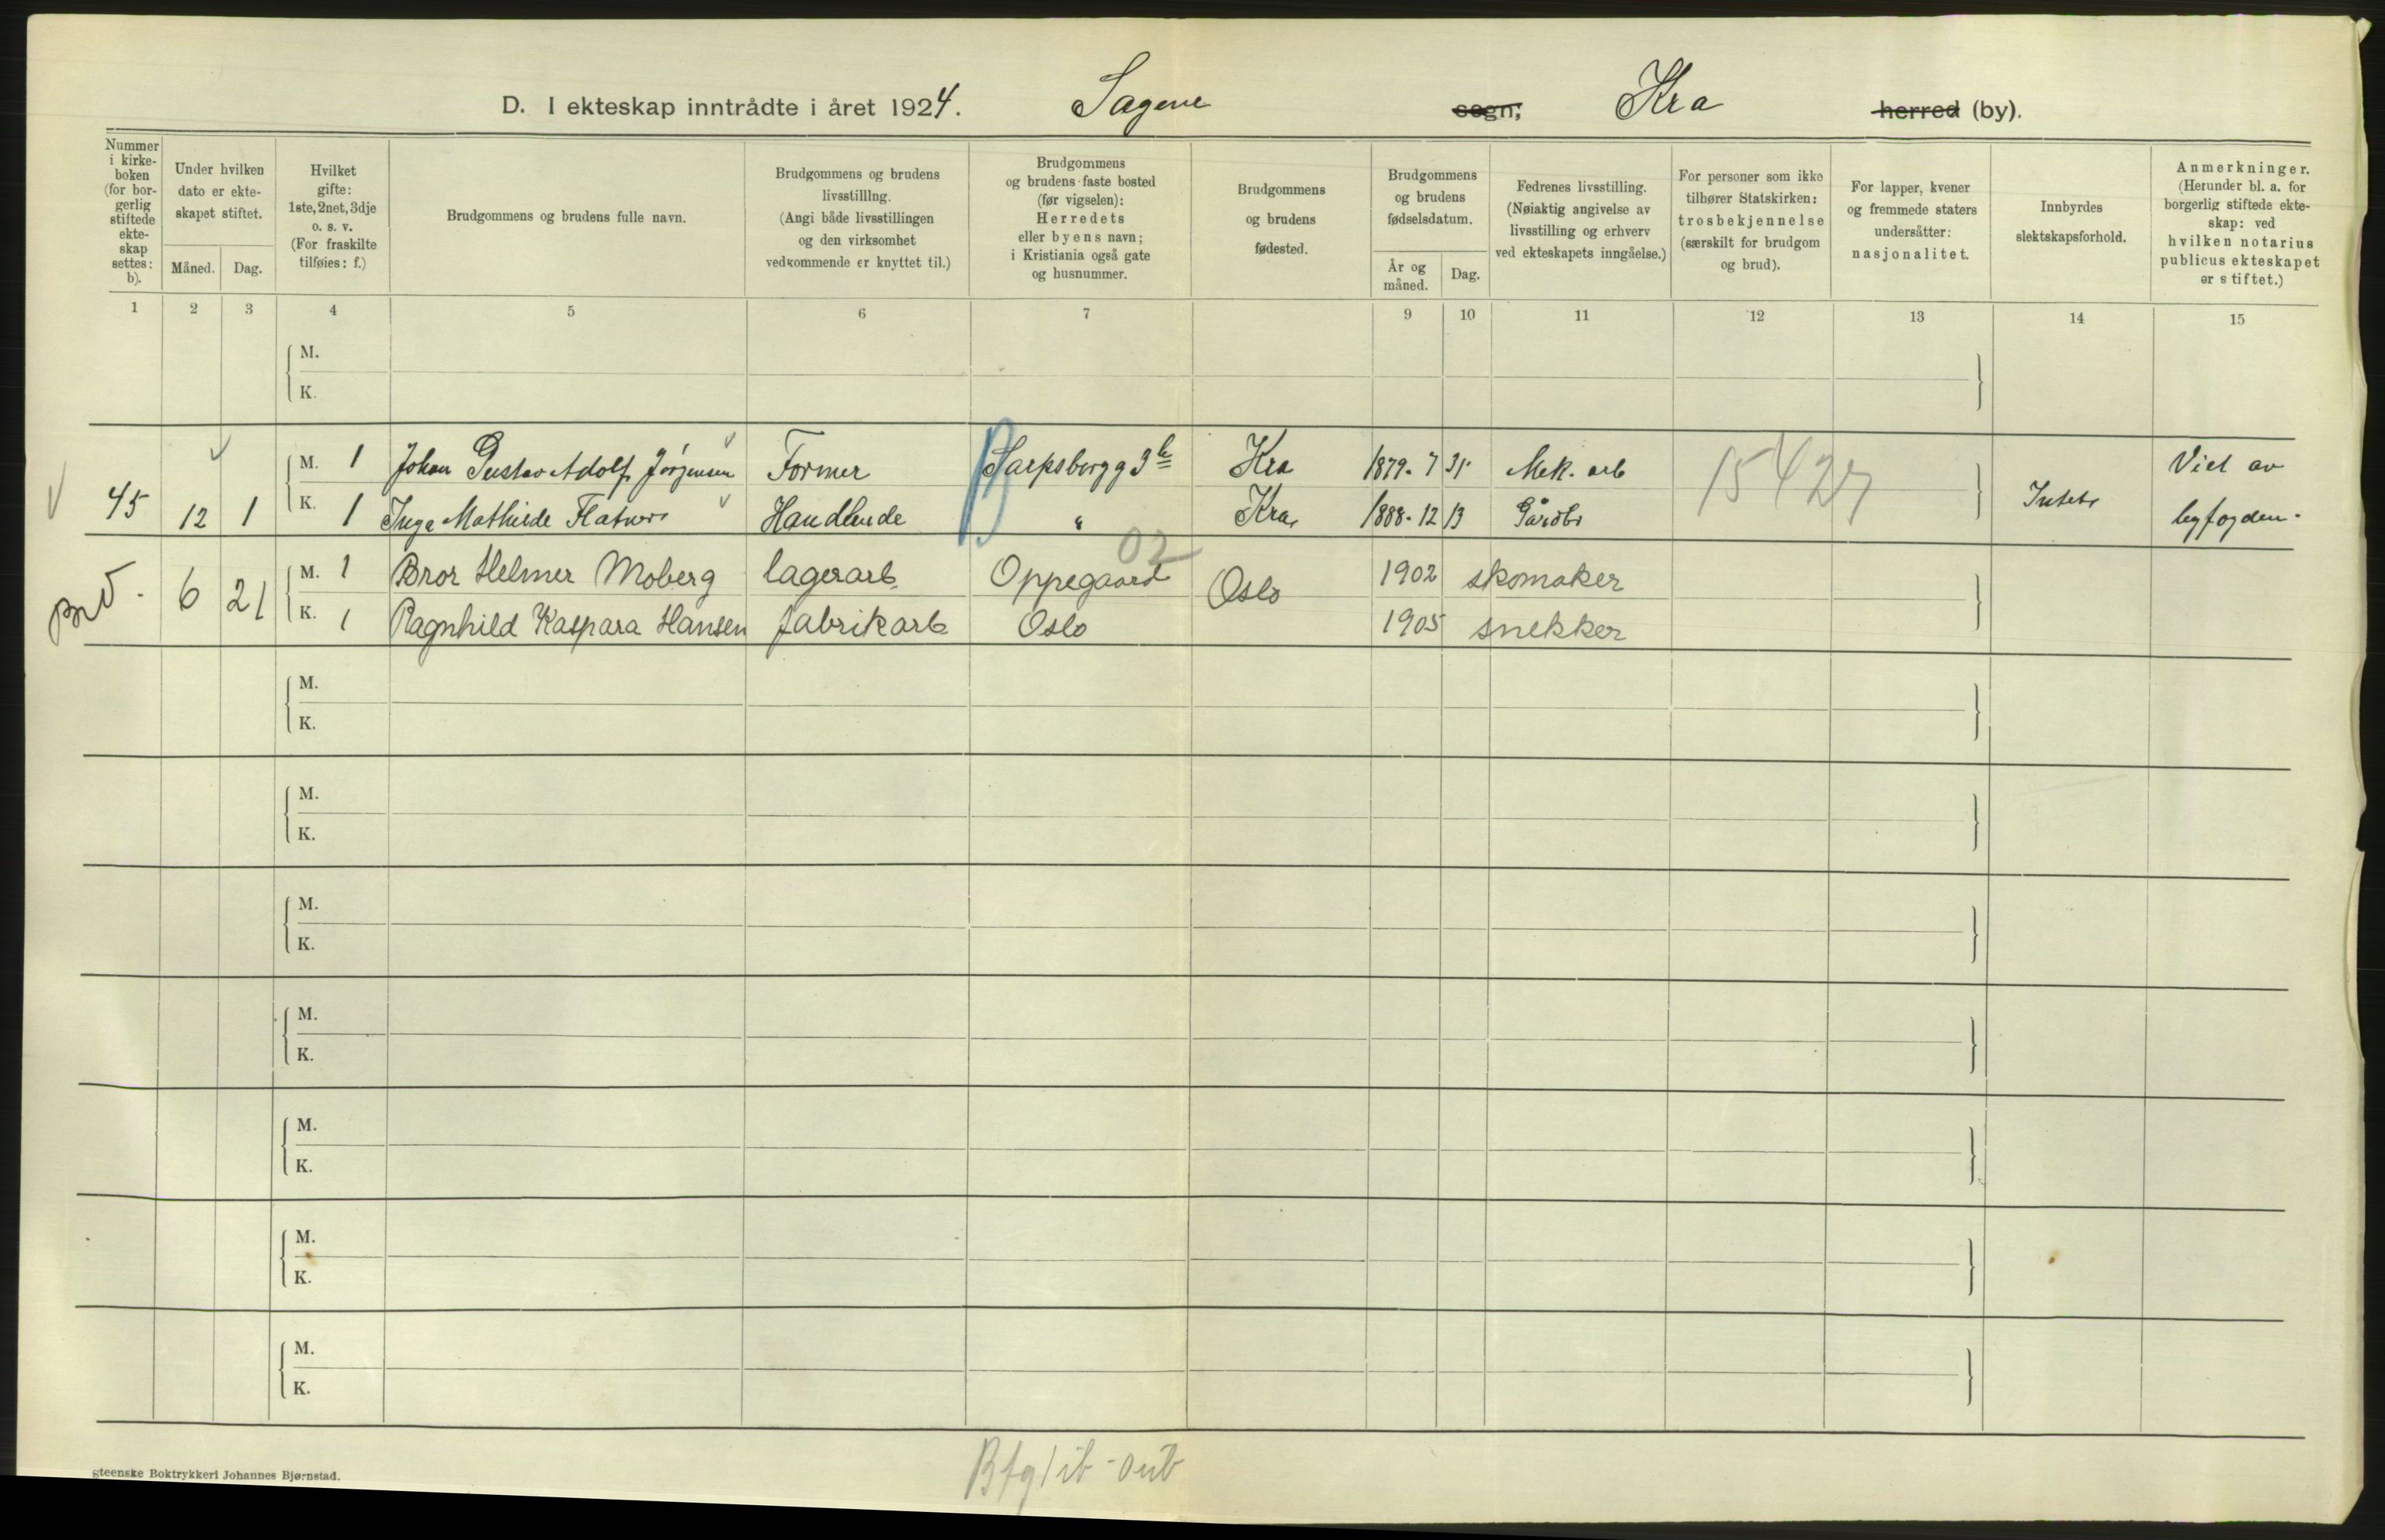 D. I ekteskap inntrådte i året 1924. Sagene sogn; Kra herred (by).
Nummer i kirke-boken (for bor-gerlig stiftede ekte-skap settes: b).
Under hvilken dato er ekte-skapet stiftet.
Måned. Dag.
Hvilket gifte: 1ste, 2net, 3dje o. s. v. (For fraskilte tilføies: f.)
Brudgommens og brudens fulle navn.
Brudgommens og brudens livsstilling. (Angi både livsstillingen og den virksomhet vedkommende er knyttet til.)
Brudgommens og brudens faste bosted (før vigselen): Herredets eller byens navn; i Kristiania også gate og husnummer.
Brudgommens og brudens fødested.
Brudgommens og brudens fødselsdatum.
År og måned. Dag.
Fedrenes livsstilling. (Nøiaktig angivelse av livsstilling og erhverv ved ekteskapets inngåelse.)
For personer som ikke tilhører Statskirken: trosbekjennelse (særskilt for brudgom og brud).
For lapper, kvener og fremmede staters undersåtter: nasjonalitet.
Innbyrdes slektskapsforhold.
Anmerkninger. (Herunder bl. a. for borgerlig stiftede ekte-skap: ved hvilken notarius publicus ekteskapet er stiftet.)
1 2 3 4 5 6 7 9 10 11 12 13 14 15
M.
K.
M. 1 Johan Gustav Adolf Jørgensen Former Sarpsborgg 3 Kra 1879. 7 31. Mek. arb 15427 Viet av
45 12 1 K. 1 Inga Mathilde Handlende " Kra. 1888. 12 13 Gårdbr Intet byfogden.
02
6 21 M. 1 Bror Helmer Moberg lagerarb. Oppegaard Oslo 1902 skomaker
K. 1 Ragnhild Kaspara Hansen fabrikarb Oslo 1905 snekker
M.
K.
M.
K.
M.
K.
M.
K.
M.
K.
M.
K.
M.
K.
gteenske Boktrykkeri Johannes Bjørnstad.